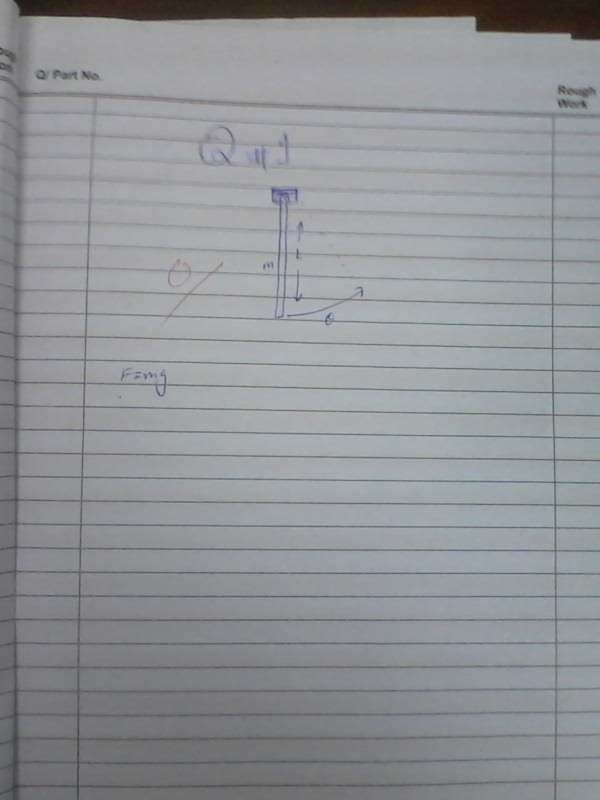 Q/ Part No.
Rough
Work
Q 1
m
L
θ
0
F=mg